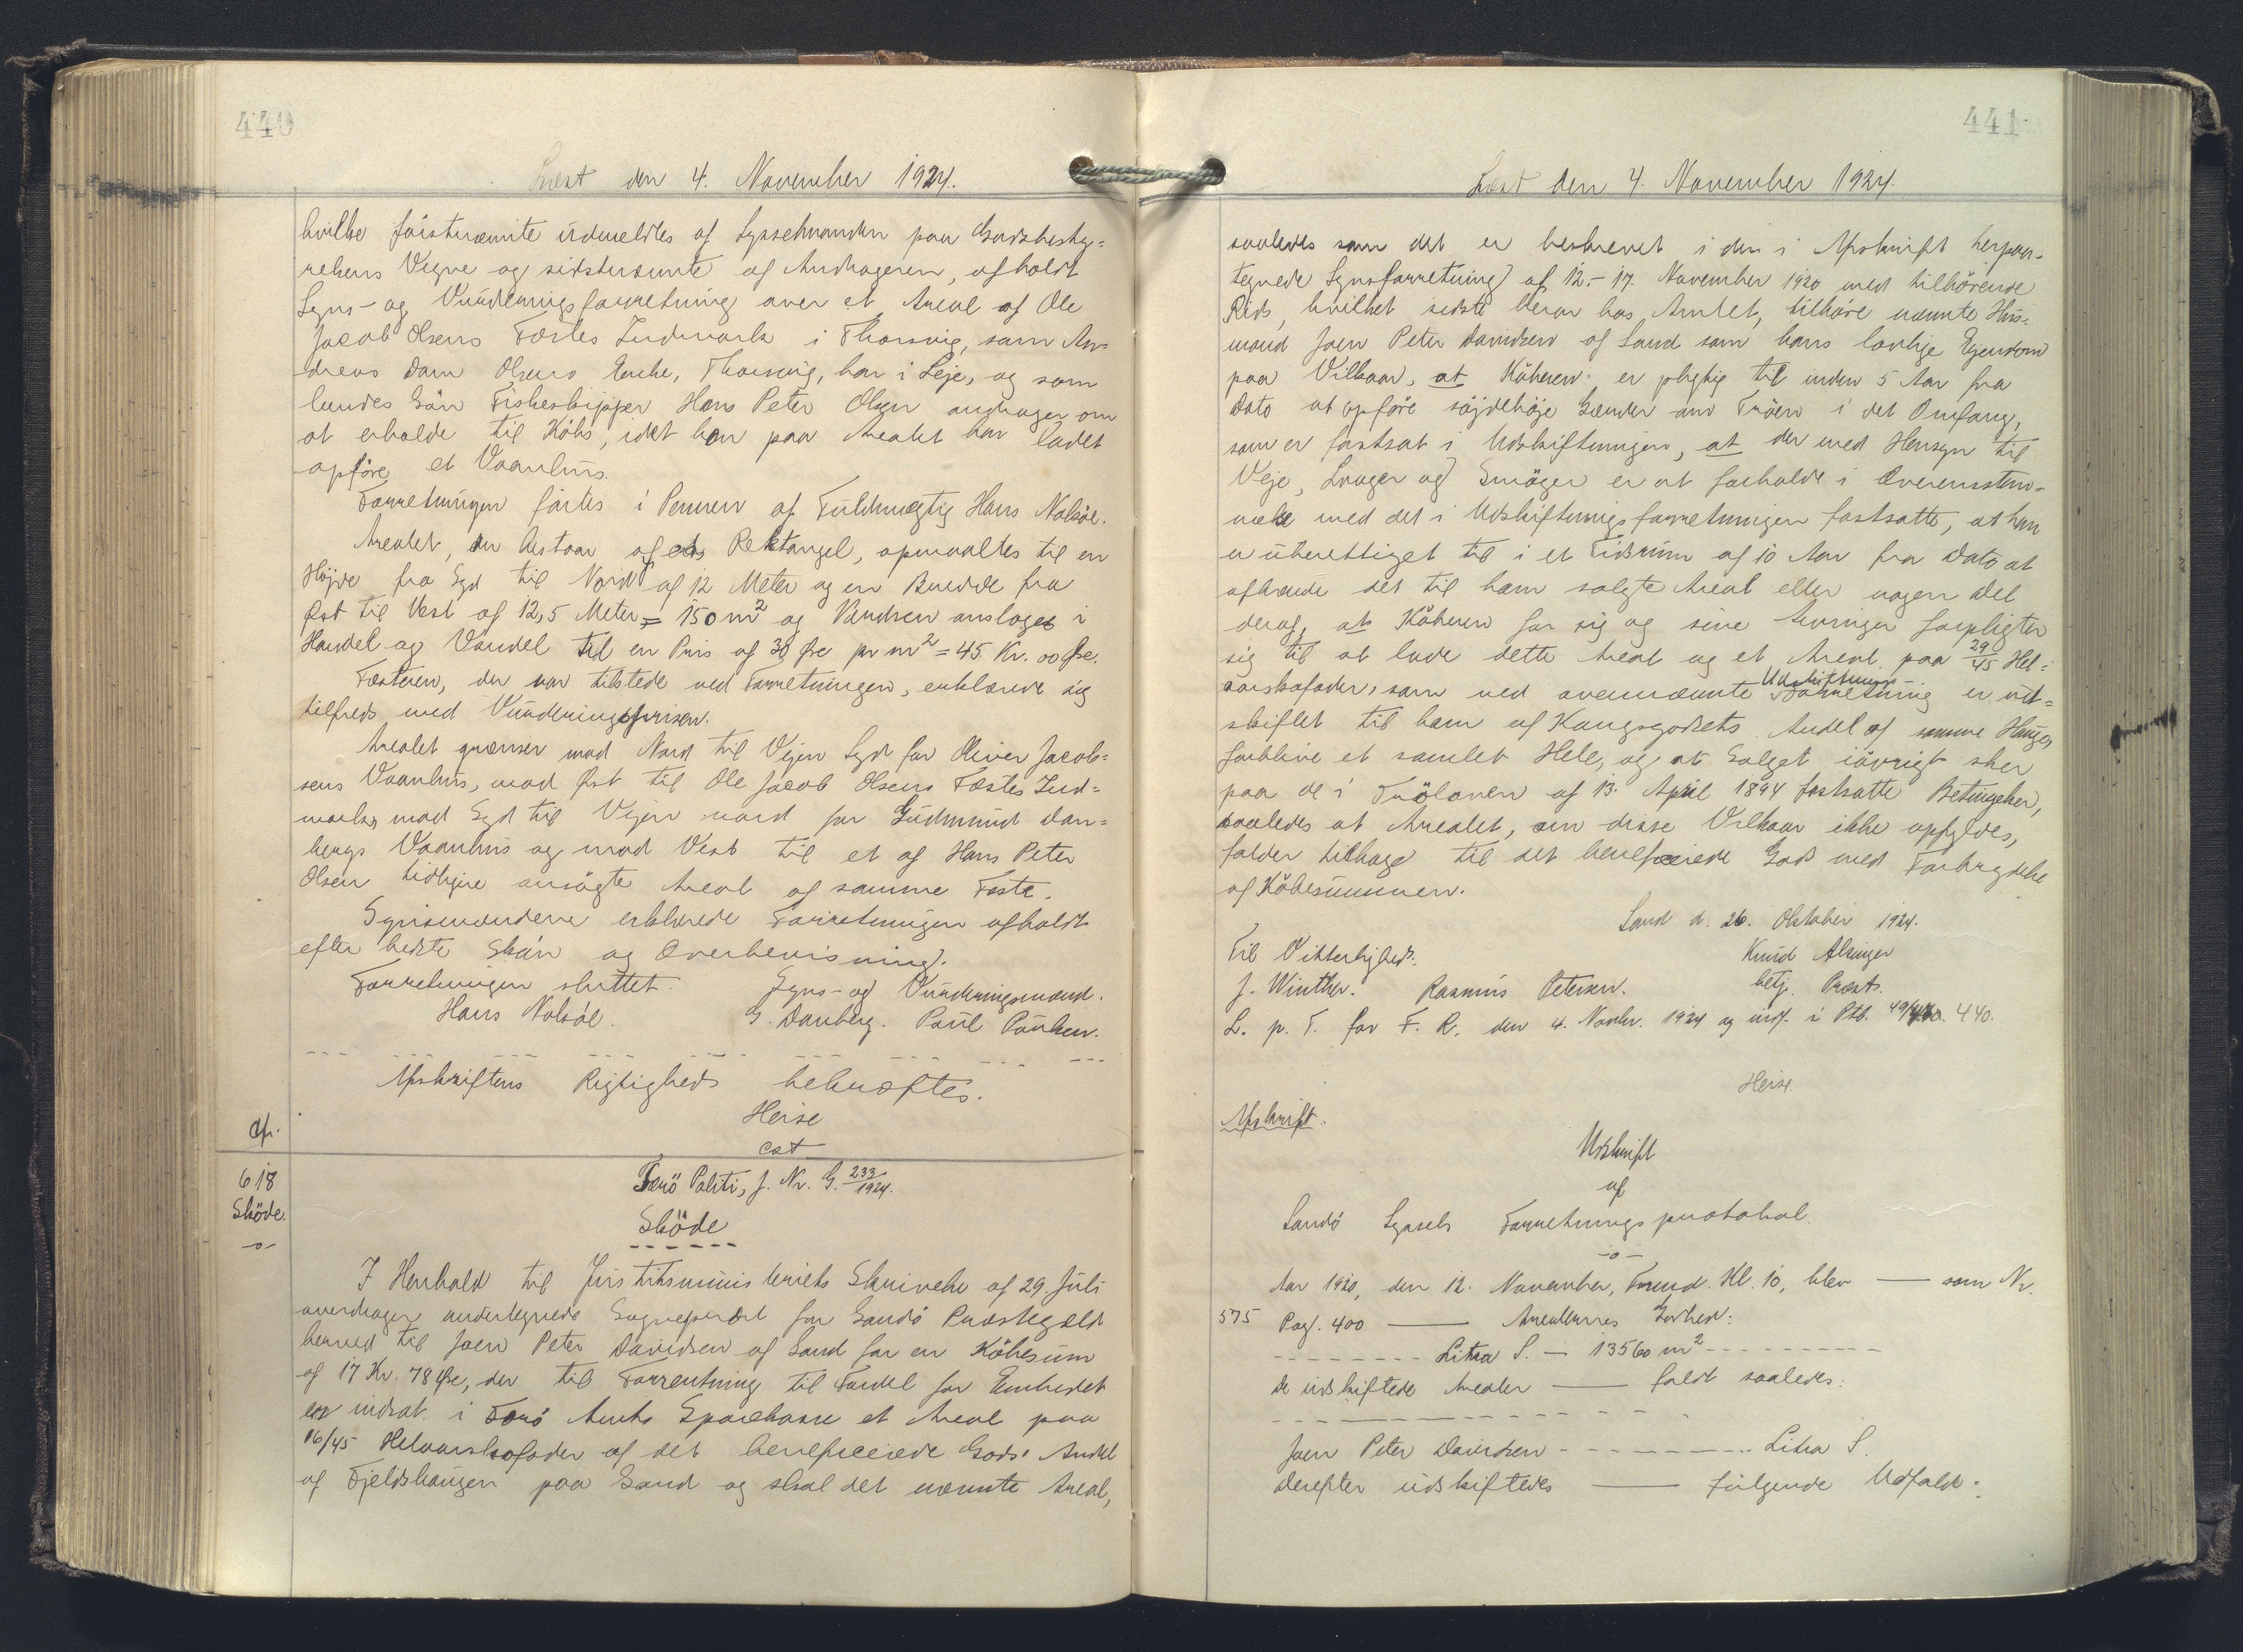 440
Læst den 4. November 1924.
hvilke förstnævnte udmeldtes af Sysselmanden paa Godsbesty=
relsens Vegne og sidstnævnte af Andrageren, afholdt
Syns- og Vurderingsforretning over et Areal af Ole
Jacob Olsens Fæstes Indmark i Thorsvig, som An=
dreas Dam Olsens Enke, Thorsvig, har i Leje, og som
hendes Sön Fiskeskipper Hans Peter Olsen andrager om
at erholde til Köbs, idet han paa Arealet har ladet
opföre et Vaanhus.
Forretningen förtes i Pennen af Fuldmægtig Hans Nolsöe.
Arealet, der bestaar af et Rektangel, opmaaltes til en
Höjde fra Syd til Nord af 12 Meter og en Bredde fra
Øst til Vest af 12,5 Meter = 150 m² og Værdien ansloges i
Handel og Vandel til en Pris af 30 Øre pr m² = 45 Kr. 00 Øre.
Fæsteren, der var tilstede ved Forretningen, erklærede sig
tilfreds med Vurderingsprisen.
Arealet grænser mod Nord til Vejen Syd for Oliver Jacob=
sens Vaanhus, mod Øst til Ole Jacob Olsens Fæstes Ind=
mark, mod Syd til Vejen nord for Gudmund Dan=
bergs Vaanhus og mod Vest til et af Hans Peter
Olsen tidligere ansögte Areal af samme Fæste.
Synsmændene erklærede Forretningen afholdt
efter bedste Skön og Overbevisning.
Forretningen sluttet. Syns- og Vurderingsmænd.
Hans Nolsöe. G. Danberg. Poul Poulsen.
Afskriftens Rigtighed bekræftes.
Heise
cst
Afs.
618
Sköde.
-o-
Færö Politi, J. Nr. G. 233/1924.
Sköde
I Henhold til Justitsministeriets Skrivelse af 29. Juli
overdrager undertegnede Sognepræst for Sandö Præstegæld
herved til Joen Peter Davidsen af Sand for en Köbesum
af 17 Kr. 78 Øre, der til Forrentning til Fordel for Embedet
er indsat i Færö Amts Sparekasse et Areal paa
16/45 Helaarskofoder af det beneficerede Gods' Andel
af Fjeldshaugen paa Sand og skal det nævnte Areal,
441
Læst den 4. November 1924.
saaledes som det er beskrevet i den i Afskrift herpaa-
tegnede Synsforretning af 12.-17. November 1920 med tilhörende
Rids, hvilket sidste beror hos Amtet, tilhöre nævnte Hus=
mand Joen Peter Davidsen af Sand som hans lovlige Ejendom
paa Vilkaar, at Köberen er pligtig til inden 5 Aar fra
Dato at opföre söjdehöje Gærder om Tröen i det Omfang,
som er fastsat i Udskiftningen, at der med Hensyn til
Veje, Leager og Smöger er at forholde i Overensstem=
melse med det i Udskiftningsforretningen fastsatte, at han
er uberettiget til i et Tidsrum af 10 Aar fra Dato at
afhænde det til ham solgte Areal eller nogen Del
deraf, at Köberen for sig og sine Arvinger forpligter
sig til at lade dette Areal og et Areal paa 29/45 Hel=
aarskofoder, som ved ovennævnte Udskiftnings-
Forretning er ud=
skiftet til ham af Kongsgodsets Andel af samme Hauge,
forblive et samlet Hele, og at Salget iövrigt sker
paa de i Trölovene af 13. April 1894 fastsatte Betingelser,
saaledes at Arealet, om disse Vilkaar ikke opfyldes,
falder tilbage til det beneficerede Gods med Fortabelse
af Köbesummen.
Sand d. 26. Oktober 1924.
Til Vitterlighed. Knud Alsinger
J. Winther. Rasmus Petersen. betj. Præst.
L. p. T. for F. R. den 4. Novbr. 1924 og indf. i Ptk. 440.
Heise.
Afskrift.
Udskrift
af
Sandö Syssels Forretningsprotokol.
-o-
Aar 1920, den 12. November, Formd. Kl. 10, blev — som Nr.
575 Pag. 400 — Arealernes Godhed:
Litra S. — 13560 m²
de udskiftede Arealer — faldt saaledes:
Joen Peter Davidsen - - - - - Litra S.
Derefter udskiftedes — fölgende Udfald: